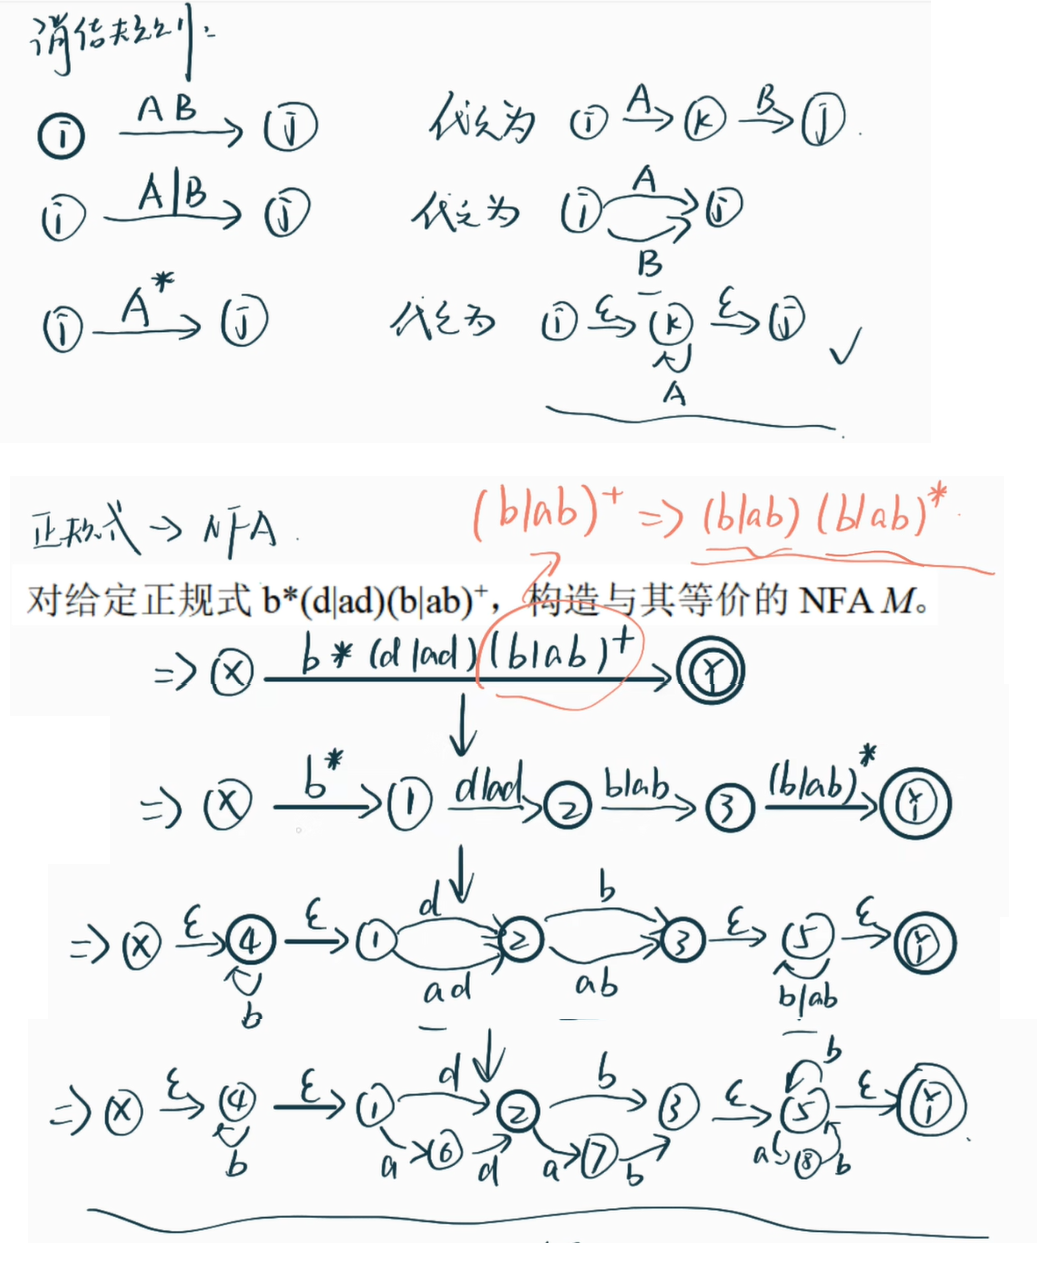 消结规则:
i AB j 代之为 i A k B j.
i A|B j 代之为 i A B j
i A* j 代之为 i ε k ε j
A
正规式 → NFA.
(b|ab)⁺ => (b|ab)(b|ab)*.
对给定正规式 b*(d|ad)(b|ab)⁺，构造与其等价的 NFA M。
=> X b*(d|ad)(b|ab)⁺ Y
=> X b* 1 d|ad 2 b|ab 3 (b|ab)* Y
=> X ε 4 ε 1 d 2 b 3 ε 5 ε Y
b ad ab b|ab
=> X ε 4 ε 1 d 2 b 3 ε 5 b ε Y
b a 6 d a 7 b a 8 b